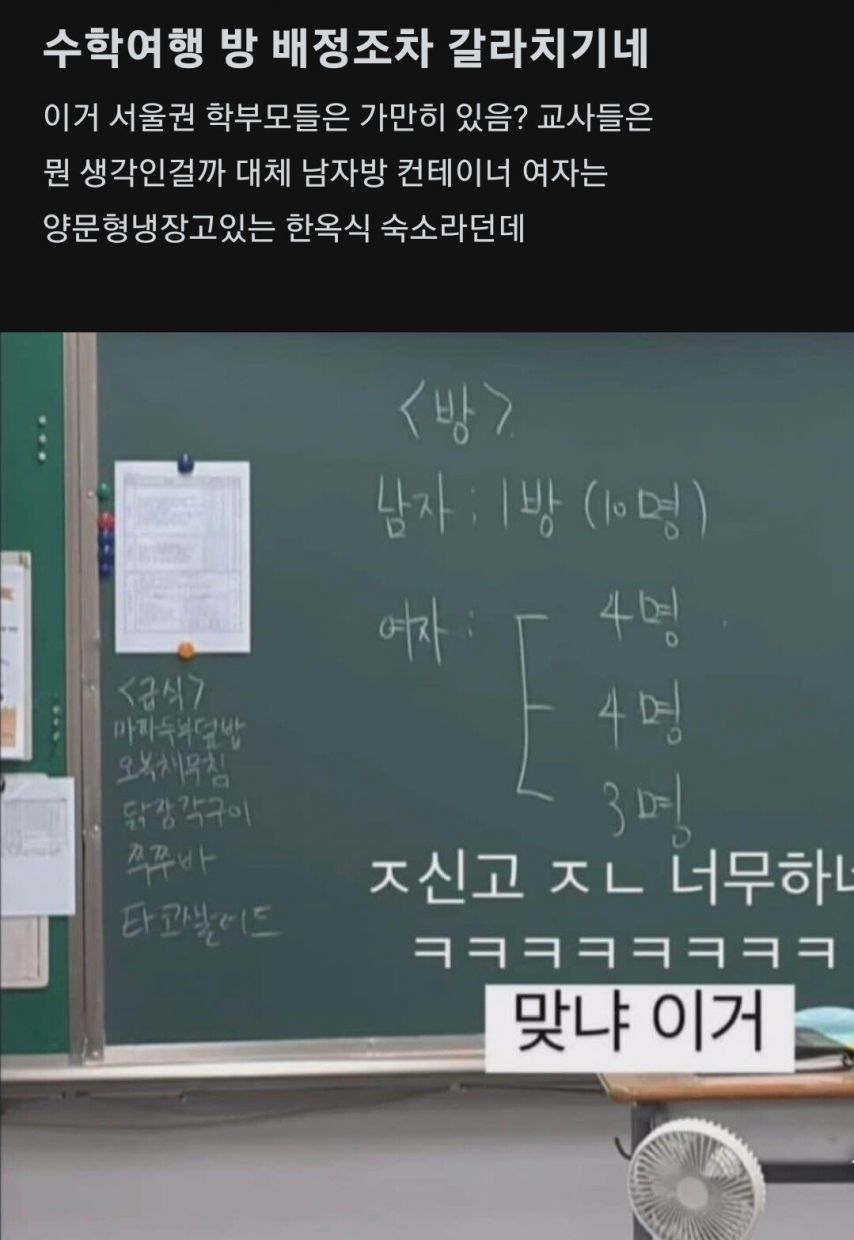 수학여행 방 배정조차 갈라치기네
이거 서울권 학부모들은 가만히 있음? 교사들은
뭔 생각인걸까 대체 남자방 컨테이너 여자는
양문형냉장고있는 한옥식 숙소라던데
<방>
남자 : 1방 (10명)
여자 : 4명
4명
3명
<급식>
마파두부덮밥
오복채무침
닭장각구이
쭉쭈바
타코샐러드
ㅈ신고 ㅈㄴ 너무하네
ㅋㅋㅋㅋㅋㅋㅋㅋ
맞냐 이거